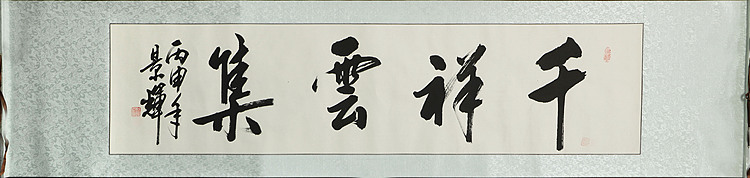 千祥雲集
丙申年
景輝